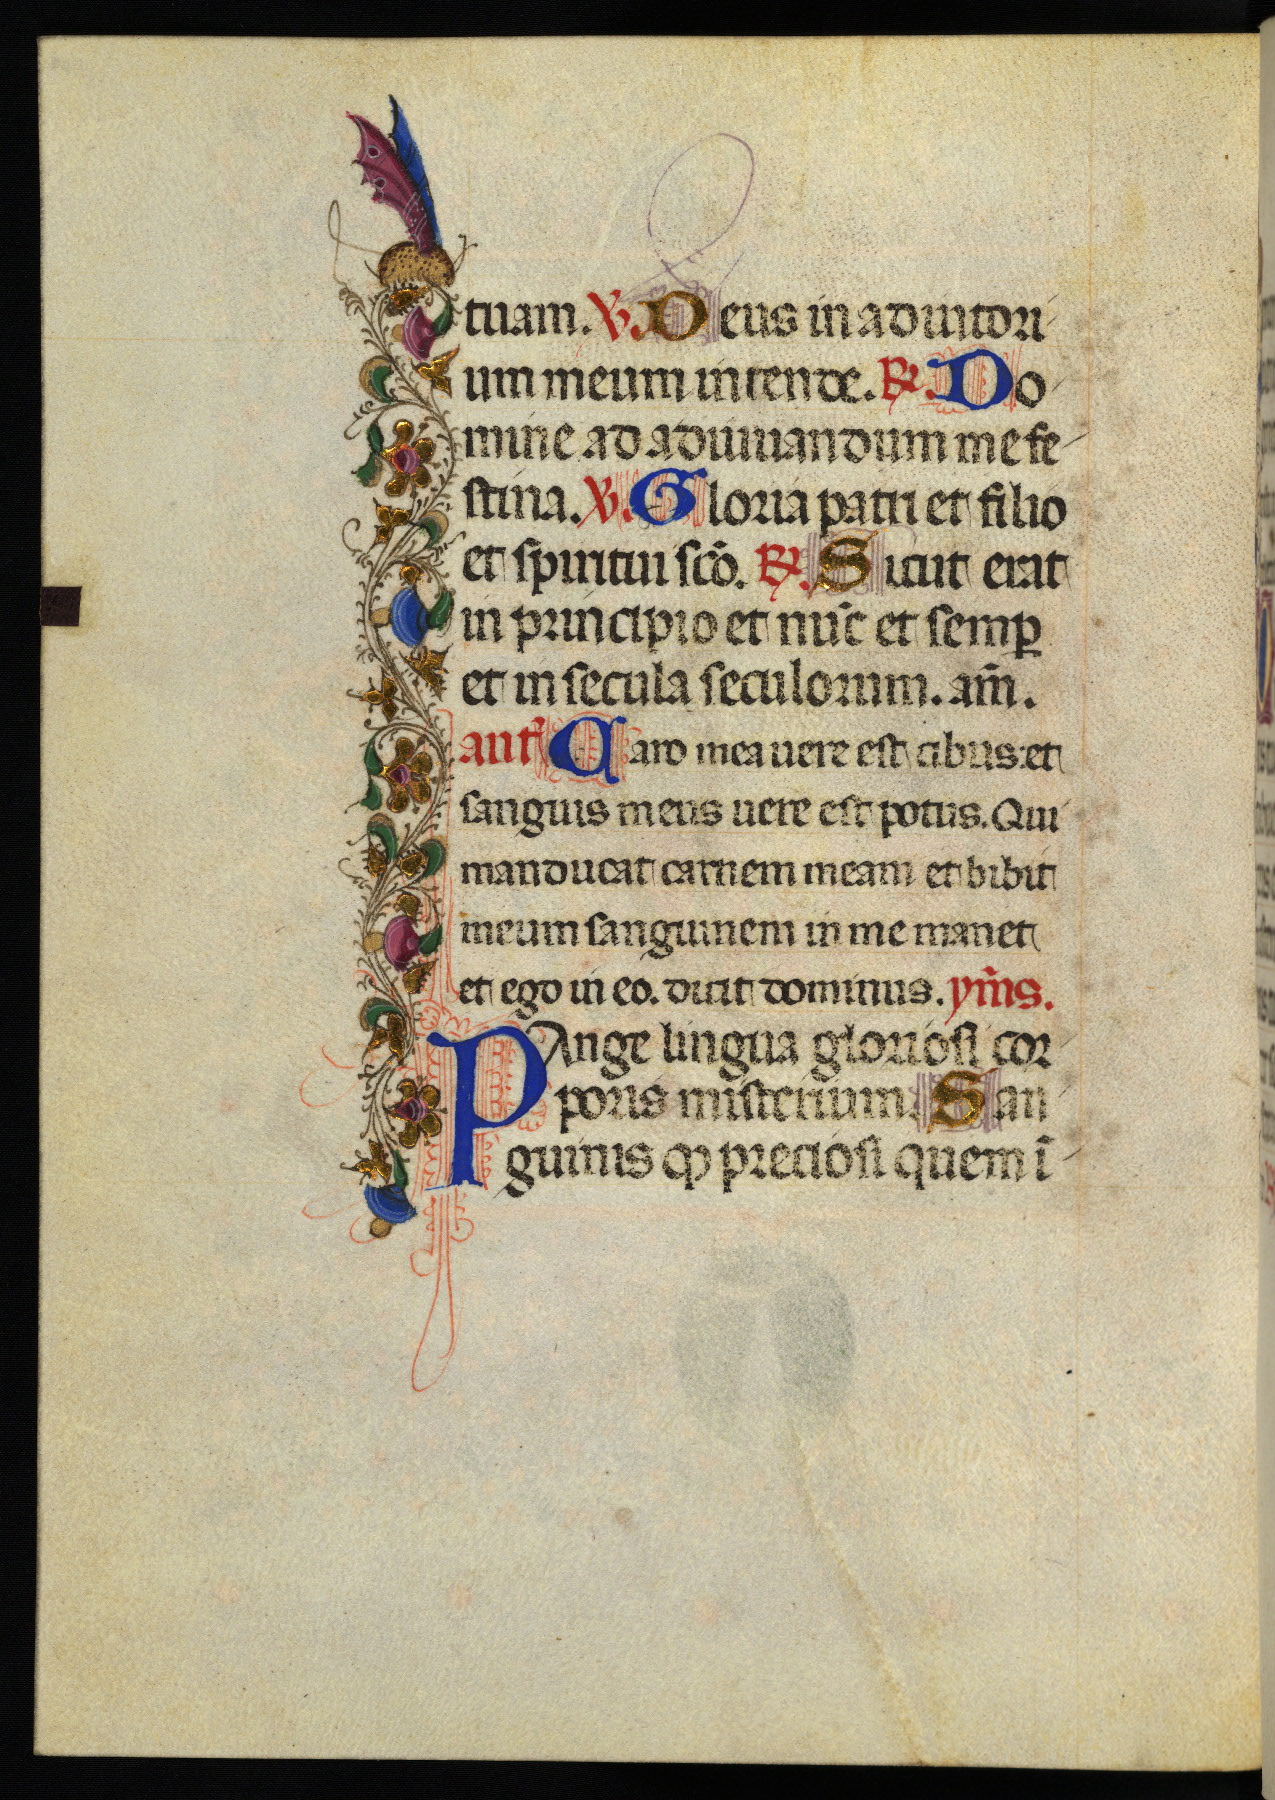 tuam. ℣. Deus in adiutori
um meum intende. ℟. Do
mine ad adiuuandum me fe
stina. ℣. Gloria patri et filio
et spiritui scō. ℟. Sicut erat
in principio et nūc et semꝑ
et in secula seculorum. am̄.
ant̄ Caro mea uere est cibus: et
sanguis meus uere est potus. Qui
manducat carnem meam et bibit
meum sanguinem in me manet
et ego in eo. dicit dominus. ym̄s.
PAnge lingua gloriosi cor
poris misterium. San
guinis qꝫ preciosi quem ī